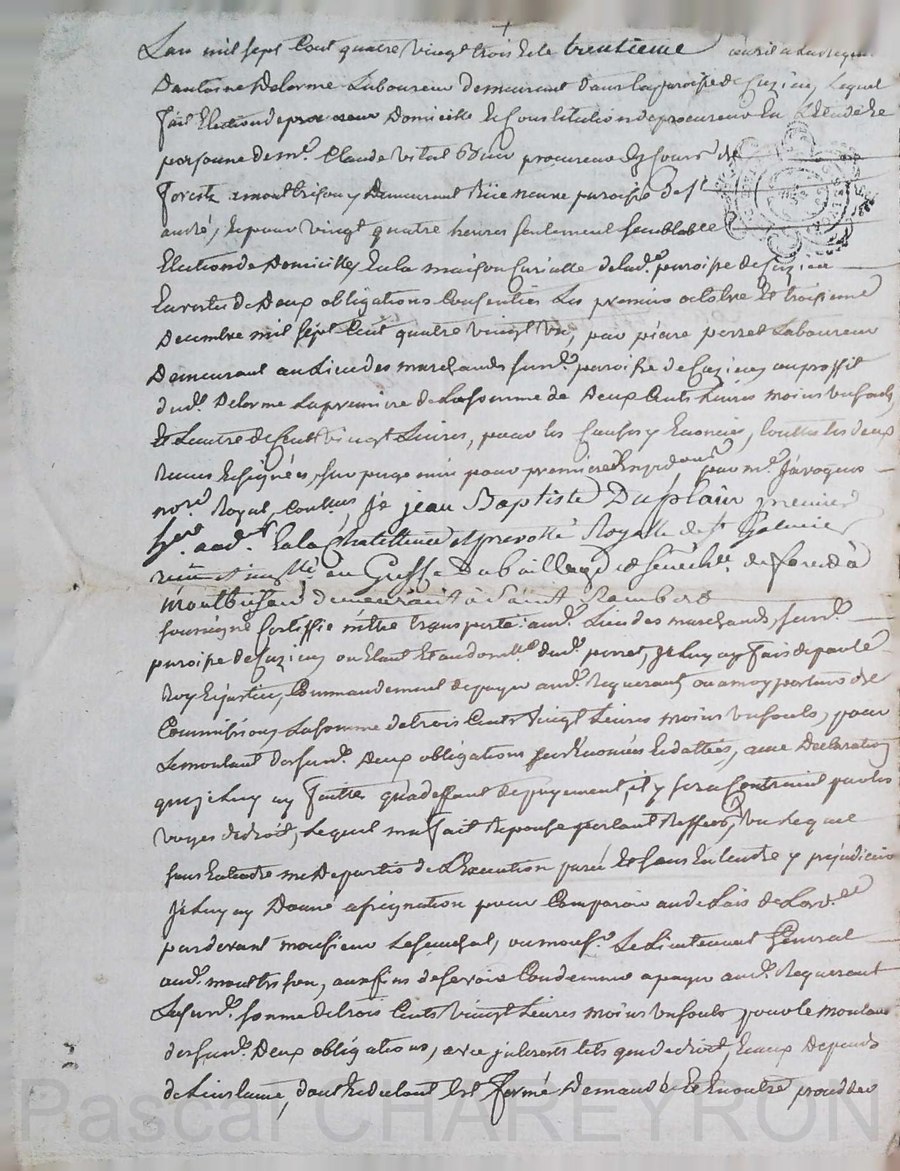 Lan mil sept Cent quatre vingt trois et le trentieme avril a la req
Dantoine Delorme Laboureur demeurant dans la paroisse de Cuzieu Lequel
fait Election de Domicille et Constitution de procureur En Letude et
personne de mr. Claude vital procureur Es Cours de
forestz a montbrison y Demeurant Rüe neuve paroisse de st
andré, et pour vingt quatre heures seulement semblable
Election de Domicille En la maison Curialle de lad. paroisse de Cuzieu
En vertu de Deux obligations Consenties Les premier octobre Et troisieme
Decembre mil sept Cent quatre vingt un, par piere perret Laboureur
Demeurant au Lieu des marchands surd. paroisse de Cuzieu au proffit
dud. Delorme La premiere de La somme de Deux Cents Livres moins un sould,
Et Lautre de Cent vingt Livres, pour les Causes y Enoncées, toutes les deux
Recues et signées, sur papier pour premiere par me. Javogues
nore. Royal, Je jean Baptiste Duplain premier
huer. aud. En la Chatellenie et prevotté Royalle de st Galmier
au Greffe Du bailliage et senechée. de forest à
Montbrison demeurant à Saint Rambert
soussigné Certiffie metre transporté aud. Lieu des marchands surd.
paroisse de Cuzieu ou Etant Et au domlle. dud. perret, Je Luy ay fait de par le
Roy Et justice, Commandement de payer aud. Requerant, ou a moy porteur de
Commission, La somme de trois Cents vingt Livres moins un sould, pour
Le montant des surd. Deux obligations sus Enoncées Et dattées, avec Declaration
que je Luy ay faitte qua deffaut de payement, il y sera Contraint par les
voyes de droit, Lequel ma fait Reponse portant Reffus, vu Lequel
sans Entendre me Departir de L'Execution parée Et sans Entendre y prejudicier
Je Luy ay Donné assignation pour Comparoir au delais de Lordce.
pardevant monsieur Le senechal, ou monsr. Le Lieutenant General
aud. montbrison, aux fins de se voir Condemner a payer aud. Requerant
La surd. somme de trois Cents vingt Livres moins un sould pour le montant
des surd. Deux obligations, avec jnterests tels que de droit, Et aux Depends
de Linstance, dont Et du tout Est formé Demande Et Encontre
Pascal CHAREYRON